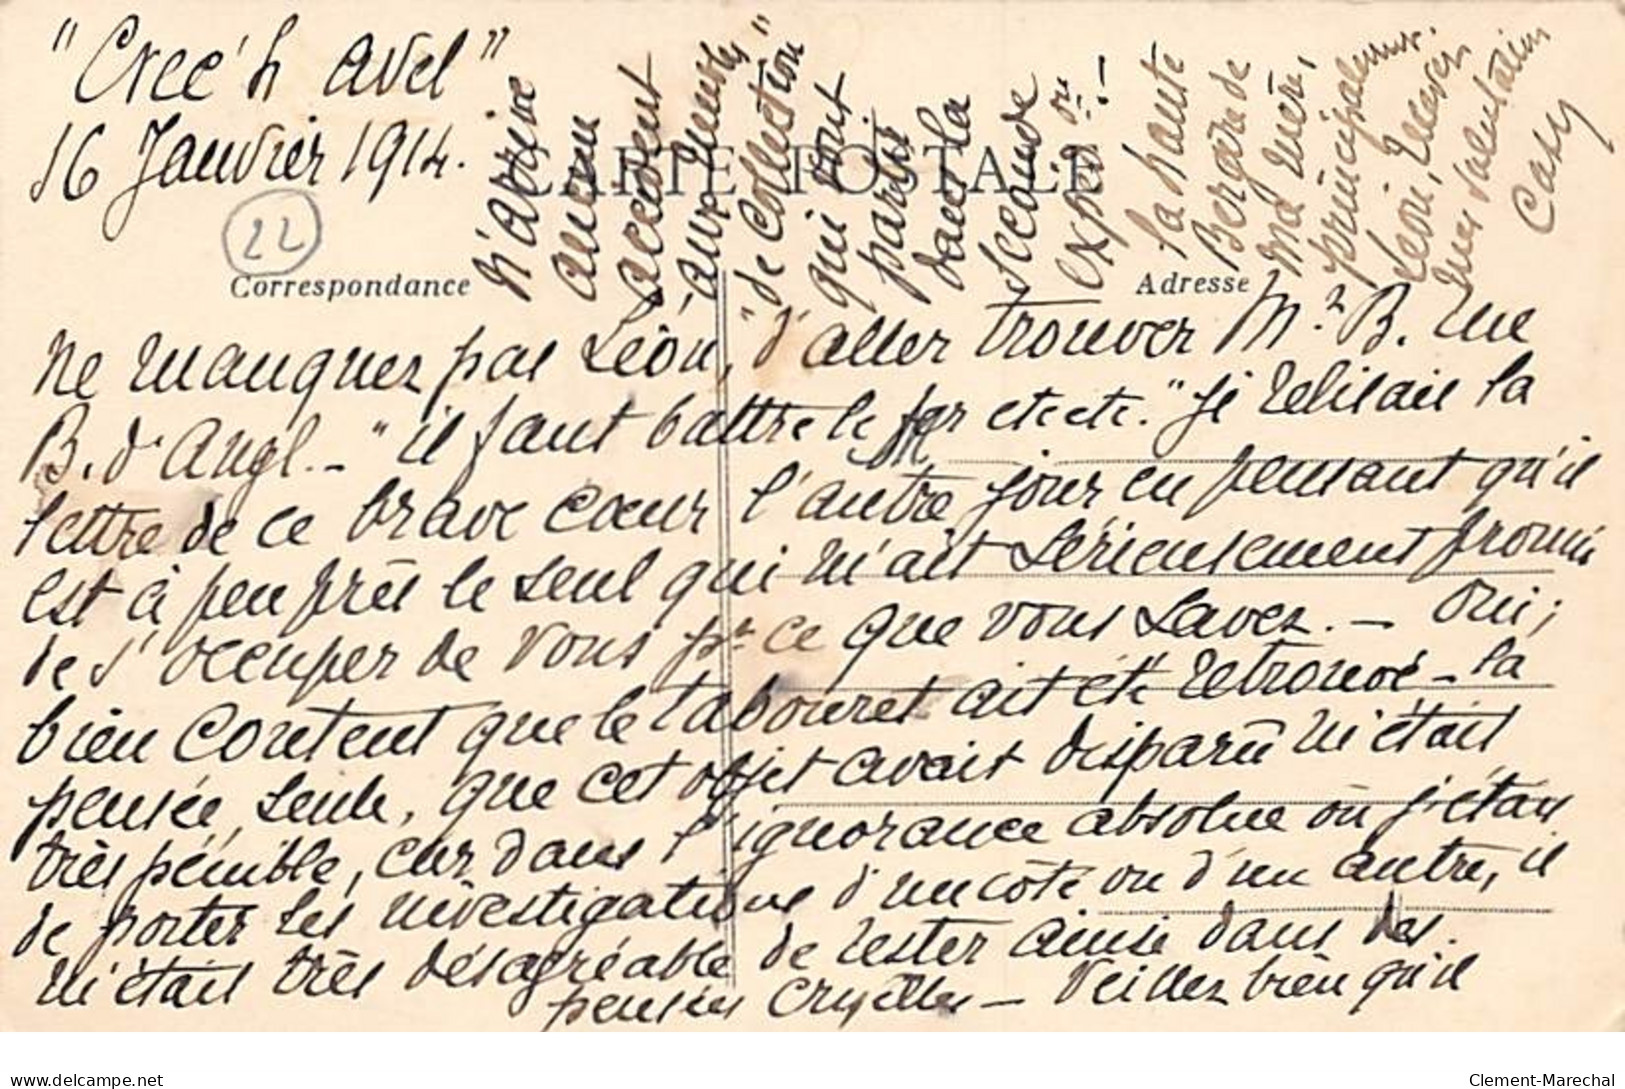 "Cree'h avel"
16 Janvier 1914.
22
CARTE POSTALE
Correspondance
Adresse
Ne manquez pas Léon, d'aller trouver Mr B. rue
B. d'Angl. - "il faut battre le fer etc etc." Je relisais la
lettre de ce brave cœur l'autre jour en pensant qu'il
est à peu près le seul qui m'ait sérieusement promis
de s'occuper de vous pr ce que vous savez. - Oui;
bien content que le tabouret ait été retrouvé - la
pensée, seule, que cet objet avait disparu m'était
très pénible, car dans l'ignorance absolue où j'étais
de porter les investigations d'un côté ou d'un autre, il
m'était très désagréable de rester ainsi dans des
pensées cruelles - Veillez bien qu'il
n'arrive
aucun
accident
aux meubles
"de collection"
qui vont
partir
dans la
seconde
expédon !
la haute
Bergère de
ma mère,
principalement.
Léon, mes
salutations